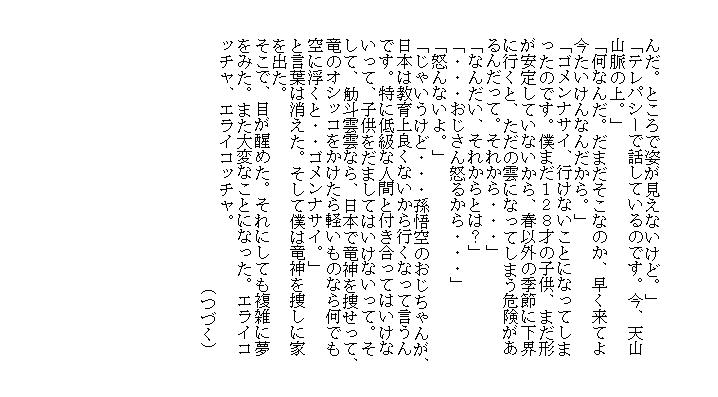 んだ。ところで姿が見えないけど。」
「テレパシーで話しているのです。今、天山
山脈の上。」
「何なんだ。だまだそこなのか、早く来てよ
今たいけんなんだから。」
「ゴメンナサイ、行けないことになってしま
ったのです。僕まだ128才の子供、まだ形
が安定していないから、春以外の季節に下界
に行くと、ただの雲になってしまう危険があ
るんだって。それから・・・」
「なんだい、それからとは？」
「・・・おじさん怒るから・・・」
「怒んないよ。」
「じゃいうけど・・・孫悟空のおじちゃんが、
日本は教育上良くないから行くなって言うん
です。特に低級な人間と付き合ってはいけな
いって、子供をだましてはいけないって。そ
して、觔斗雲雲なら、日本で竜神を捜せって、
竜のオシッコをかけたら軽いものなら何でも
空に浮くと・・ゴメンナサイ。」
と言葉は消えた。そして僕は竜神を捜しに家
を出た。
そこで、目が醒めた。それにしても複雑に夢
をみた。また大変なことになった。エライコ
ッチャ、エライコッチャ。
（つづく）